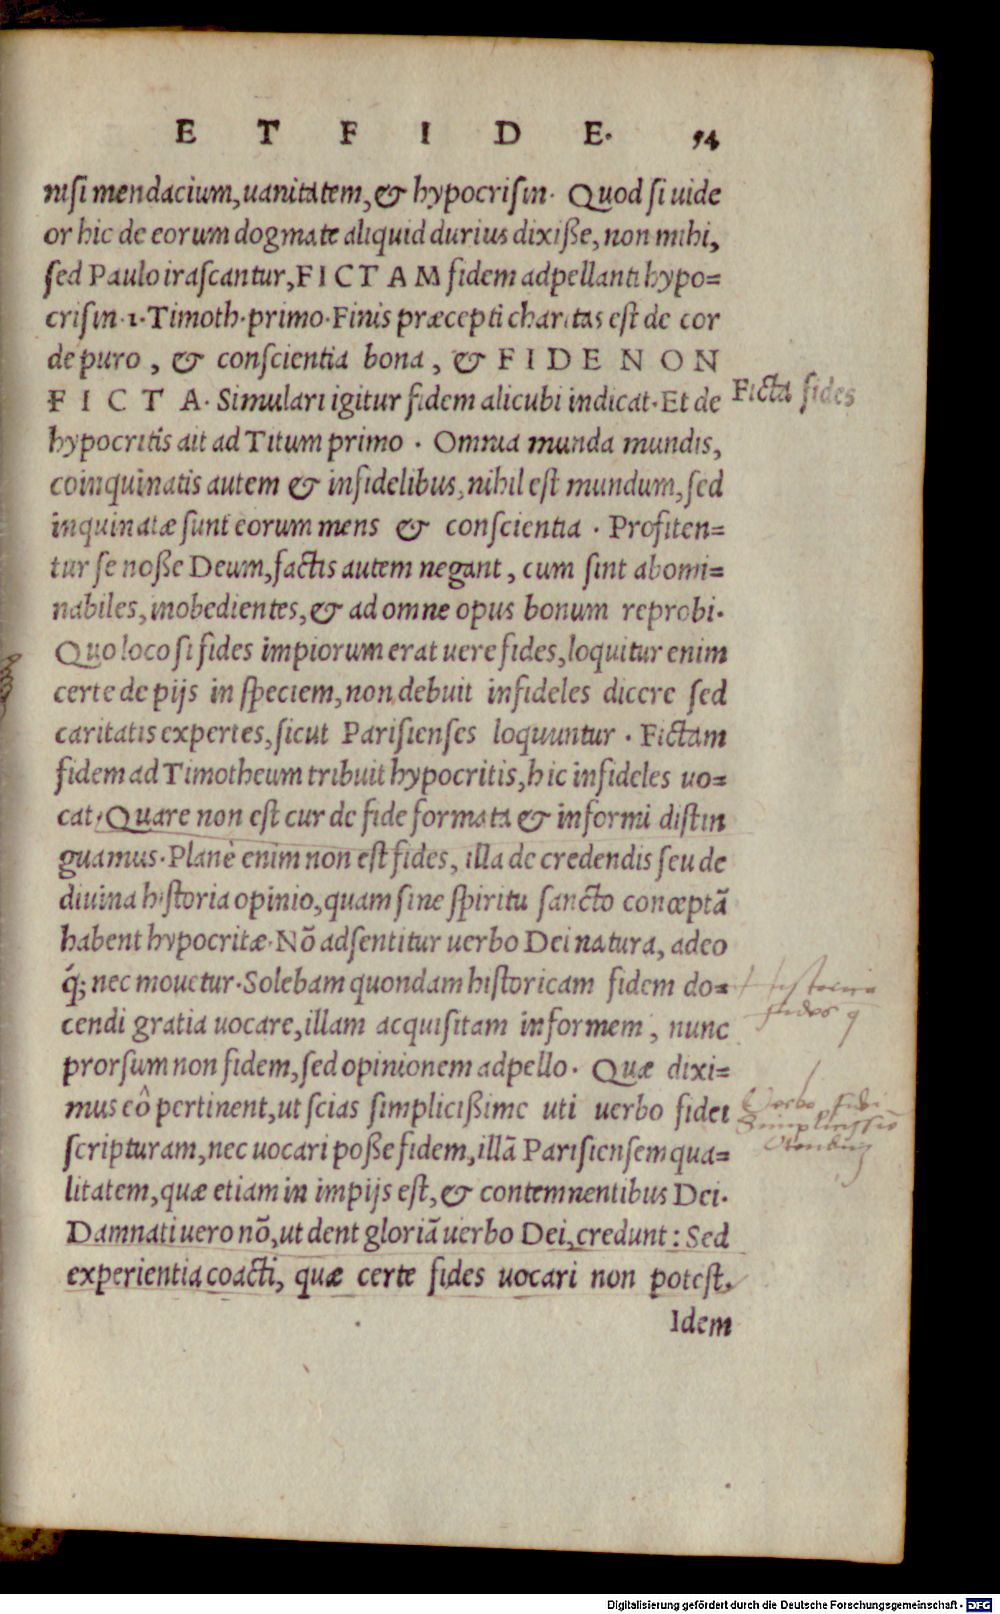 E T F I D E. 54
nisi mendacium, uanitatem, & hypocrisin. Quod si uide
or hic de eorum dogmate aliquid durius dixiße, non mihi,
sed Paulo irascantur, FICTAM fidem adpellanti hypo=
crisin. 1. Timoth. primo. Finis præcepti charitas est de cor
de puro, & conscientia bona, & FIDE NON
FICTA. Simulari igitur fidem alicubi indicat. Et de
Ficta fides
hypocritis ait ad Titum primo. Omnia munda mundis,
coinquinatis autem & infidelibus, nihil est mundum, sed
inquinatæ sunt eorum mens & conscientia. Profiten=
tur se noße Deum, factis autem negant, cum sint abomi=
nabiles, inobedientes, & ad omne opus bonum reprobi.
Quo loco si fides impiorum erat uere fides, loquitur enim
certe de pijs in speciem, non debuit infideles dicere sed
caritatis expertes, sicut Parisienses loquuntur. Fictam
fidem ad Timotheum tribuit hypocritis, hic infideles uo=
cat, Quare non est cur de fide formata & informi distin
guamus. Planè enim non est fides, illa de credendis seu de
diuina historia opinio, quam sine spiritu sancto conceptã
habent hypocritæ. Nõ adsentitur uerbo Dei natura, adeo
q́; nec mouetur. Solebam quondam historicam fidem do=
cendi gratia uocare, illam acquisitam informem, nunc
prorsum non fidem, sed opinionem adpello. Quæ dixi=
mus eô pertinent, ut scias simplicißime uti uerbo fidei
scripturam, nec uocari poße fidem, illã Parisiensem qua=
litatem, quæ etiam in impijs est, & contemnentibus Dei.
Damnati uero nõ, ut dent gloriã uerbo Dei, credunt: Sed
experientia coacti, quæ certe fides uocari non potest.
Idem
Historica
fides
Verbo fidei
Digitalisierung gefördert durch die Deutsche Forschungsgemeinschaft - DFG